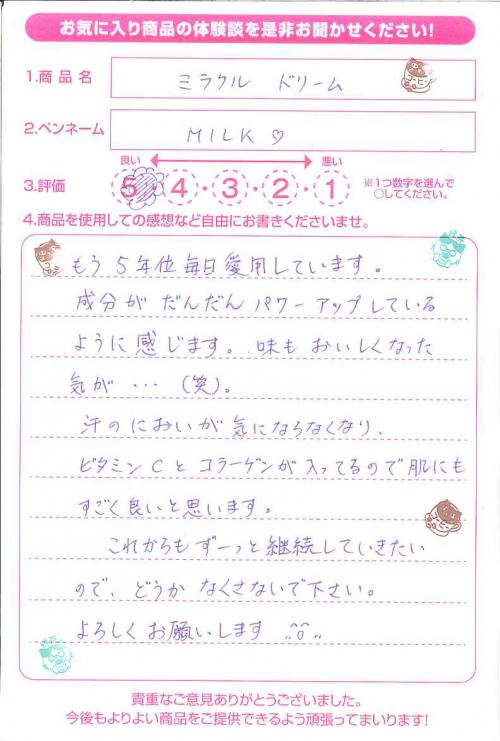 お気に入り商品の体験談を是非お聞かせください!
1.商品名 ミラクル ドリーム
2.ペンネーム MILK♡
良い 悪い
3.評価 5・4・3・2・1 ※1つ数字を選んで
○してください。
4.商品を使用しての感想など自由にお書きくださいませ。
もう5年位毎日愛用しています。
成分がだんだんパワーアップしている
ように感じます。味もおいしくなった
気が…(笑)。
汗のにおいが気にならなくなり、
ビタミンCとコラーゲンが入ってるので肌にも
すごく良いと思います。
これからもずーっと継続していきたい
ので、どうかなくさないで下さい。
よろしくお願いします
貴重なご意見ありがとうございました。
今後もよりよい商品をご提供できるよう頑張ってまいります!